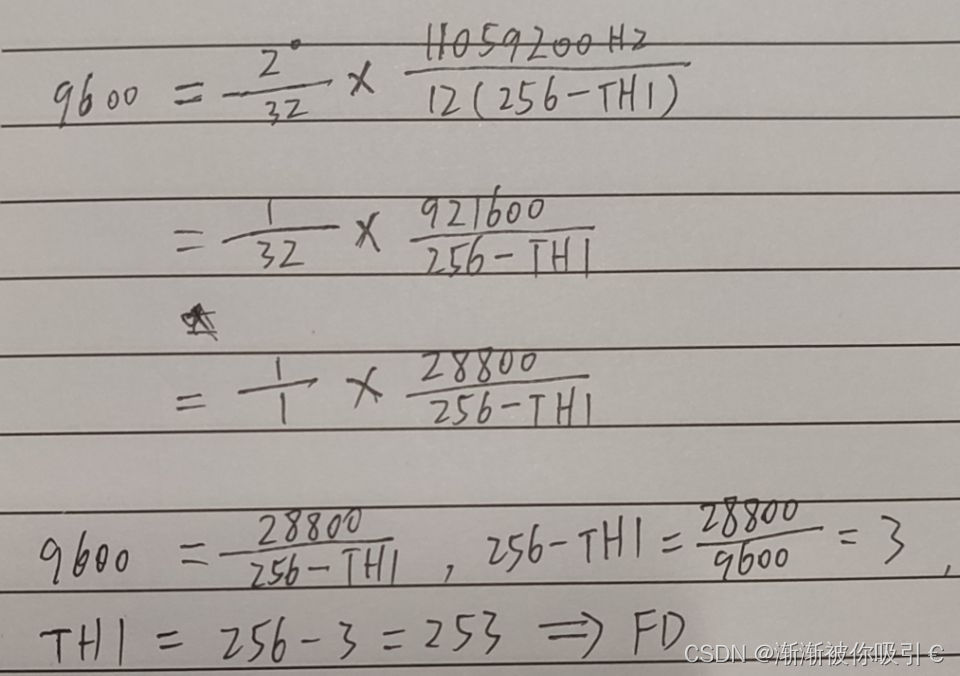 9600 = 2⁰/32 × 11059200HZ/12(256-TH1)
= 1/32 × 921600/256-TH1
= 1/1 × 28800/256-TH1
9600 = 28800/256-TH1 , 256-TH1 = 28800/9600 = 3 ,
TH1 = 256-3 = 253 => FD
CSDN @渐渐被你吸引 C